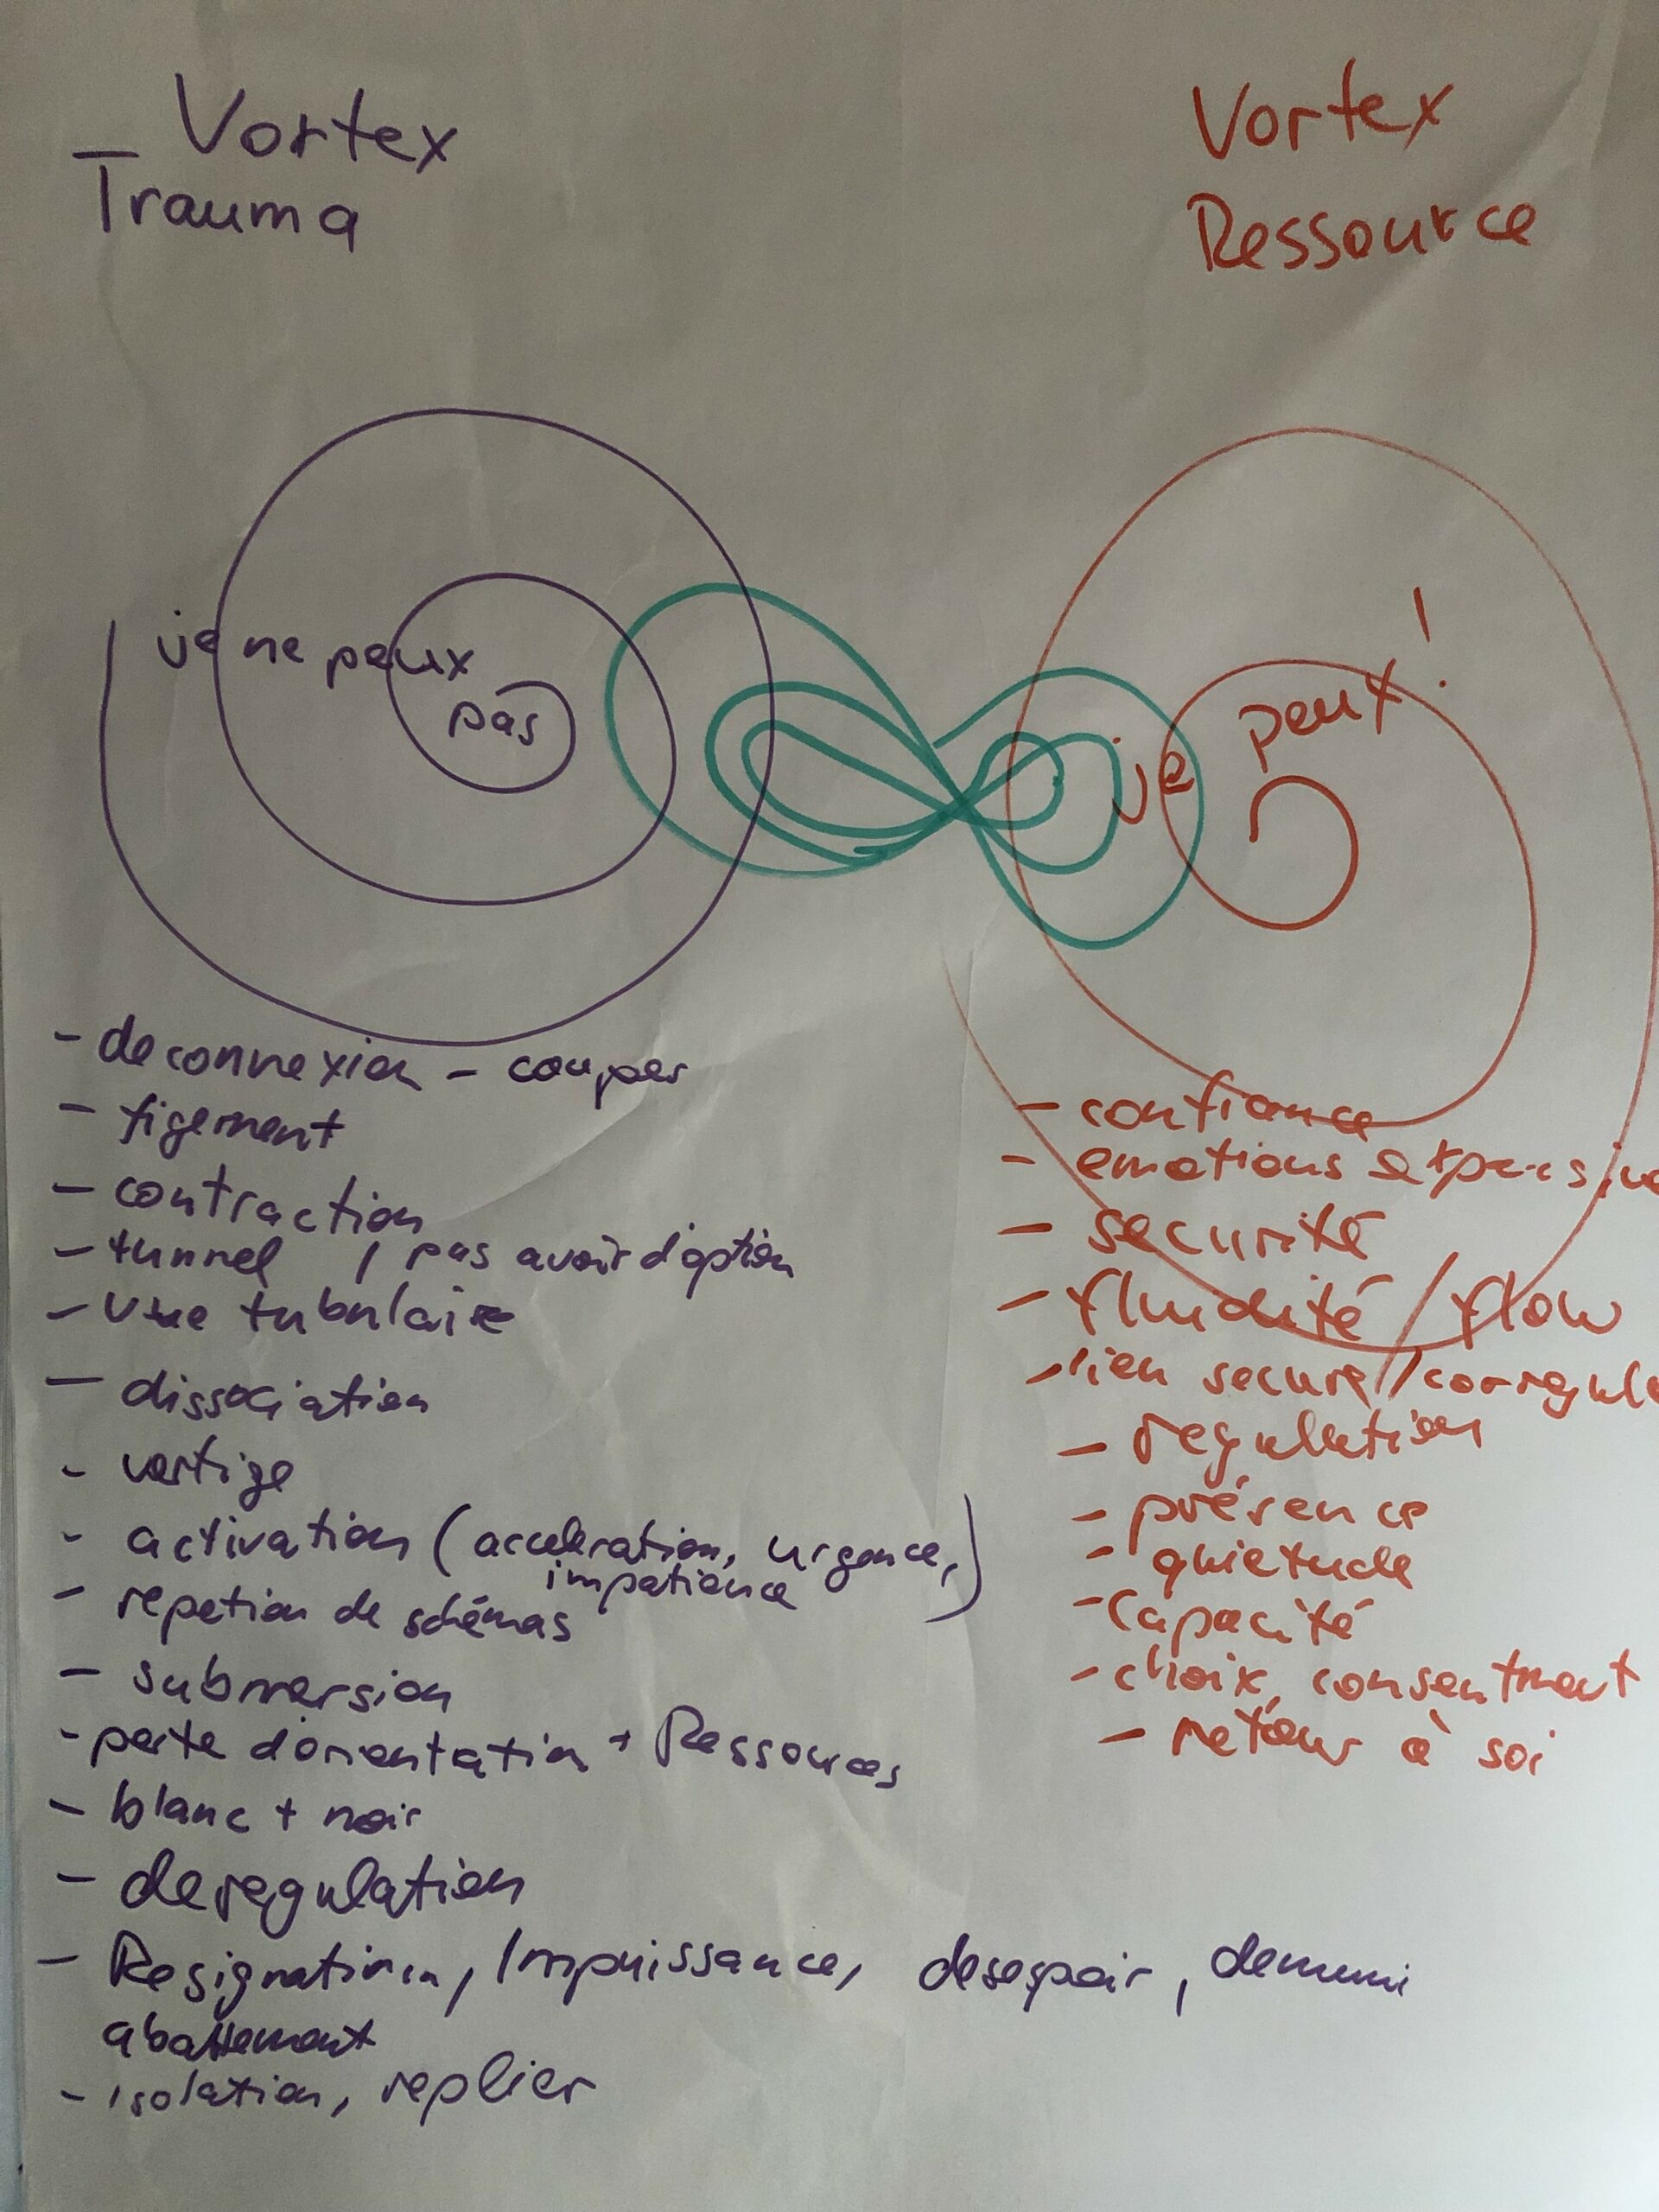 Vortex
Trauma
je ne peux
pas
- deconnexion - couper
- figement
- contraction
- tunnel / pas avoir d'option
- vue tubulaire
- dissociation
- vertige
- activation (acceleration, urgence,)
impatience
- repetion de schémas
- submersion
- perte d'orientation + Ressources
- blanc + noir
- deregulation
- Resignation, Impuissance, desespoir, demuni
abattement
- isolation, replier
Vortex
Ressource
je peux!
- confiance
- emotions
- securité
- fluidité / flow
- lien secure / corregul
- regulation
- présence
- quietude
- capacité
- choix, consentment
- retour à soi